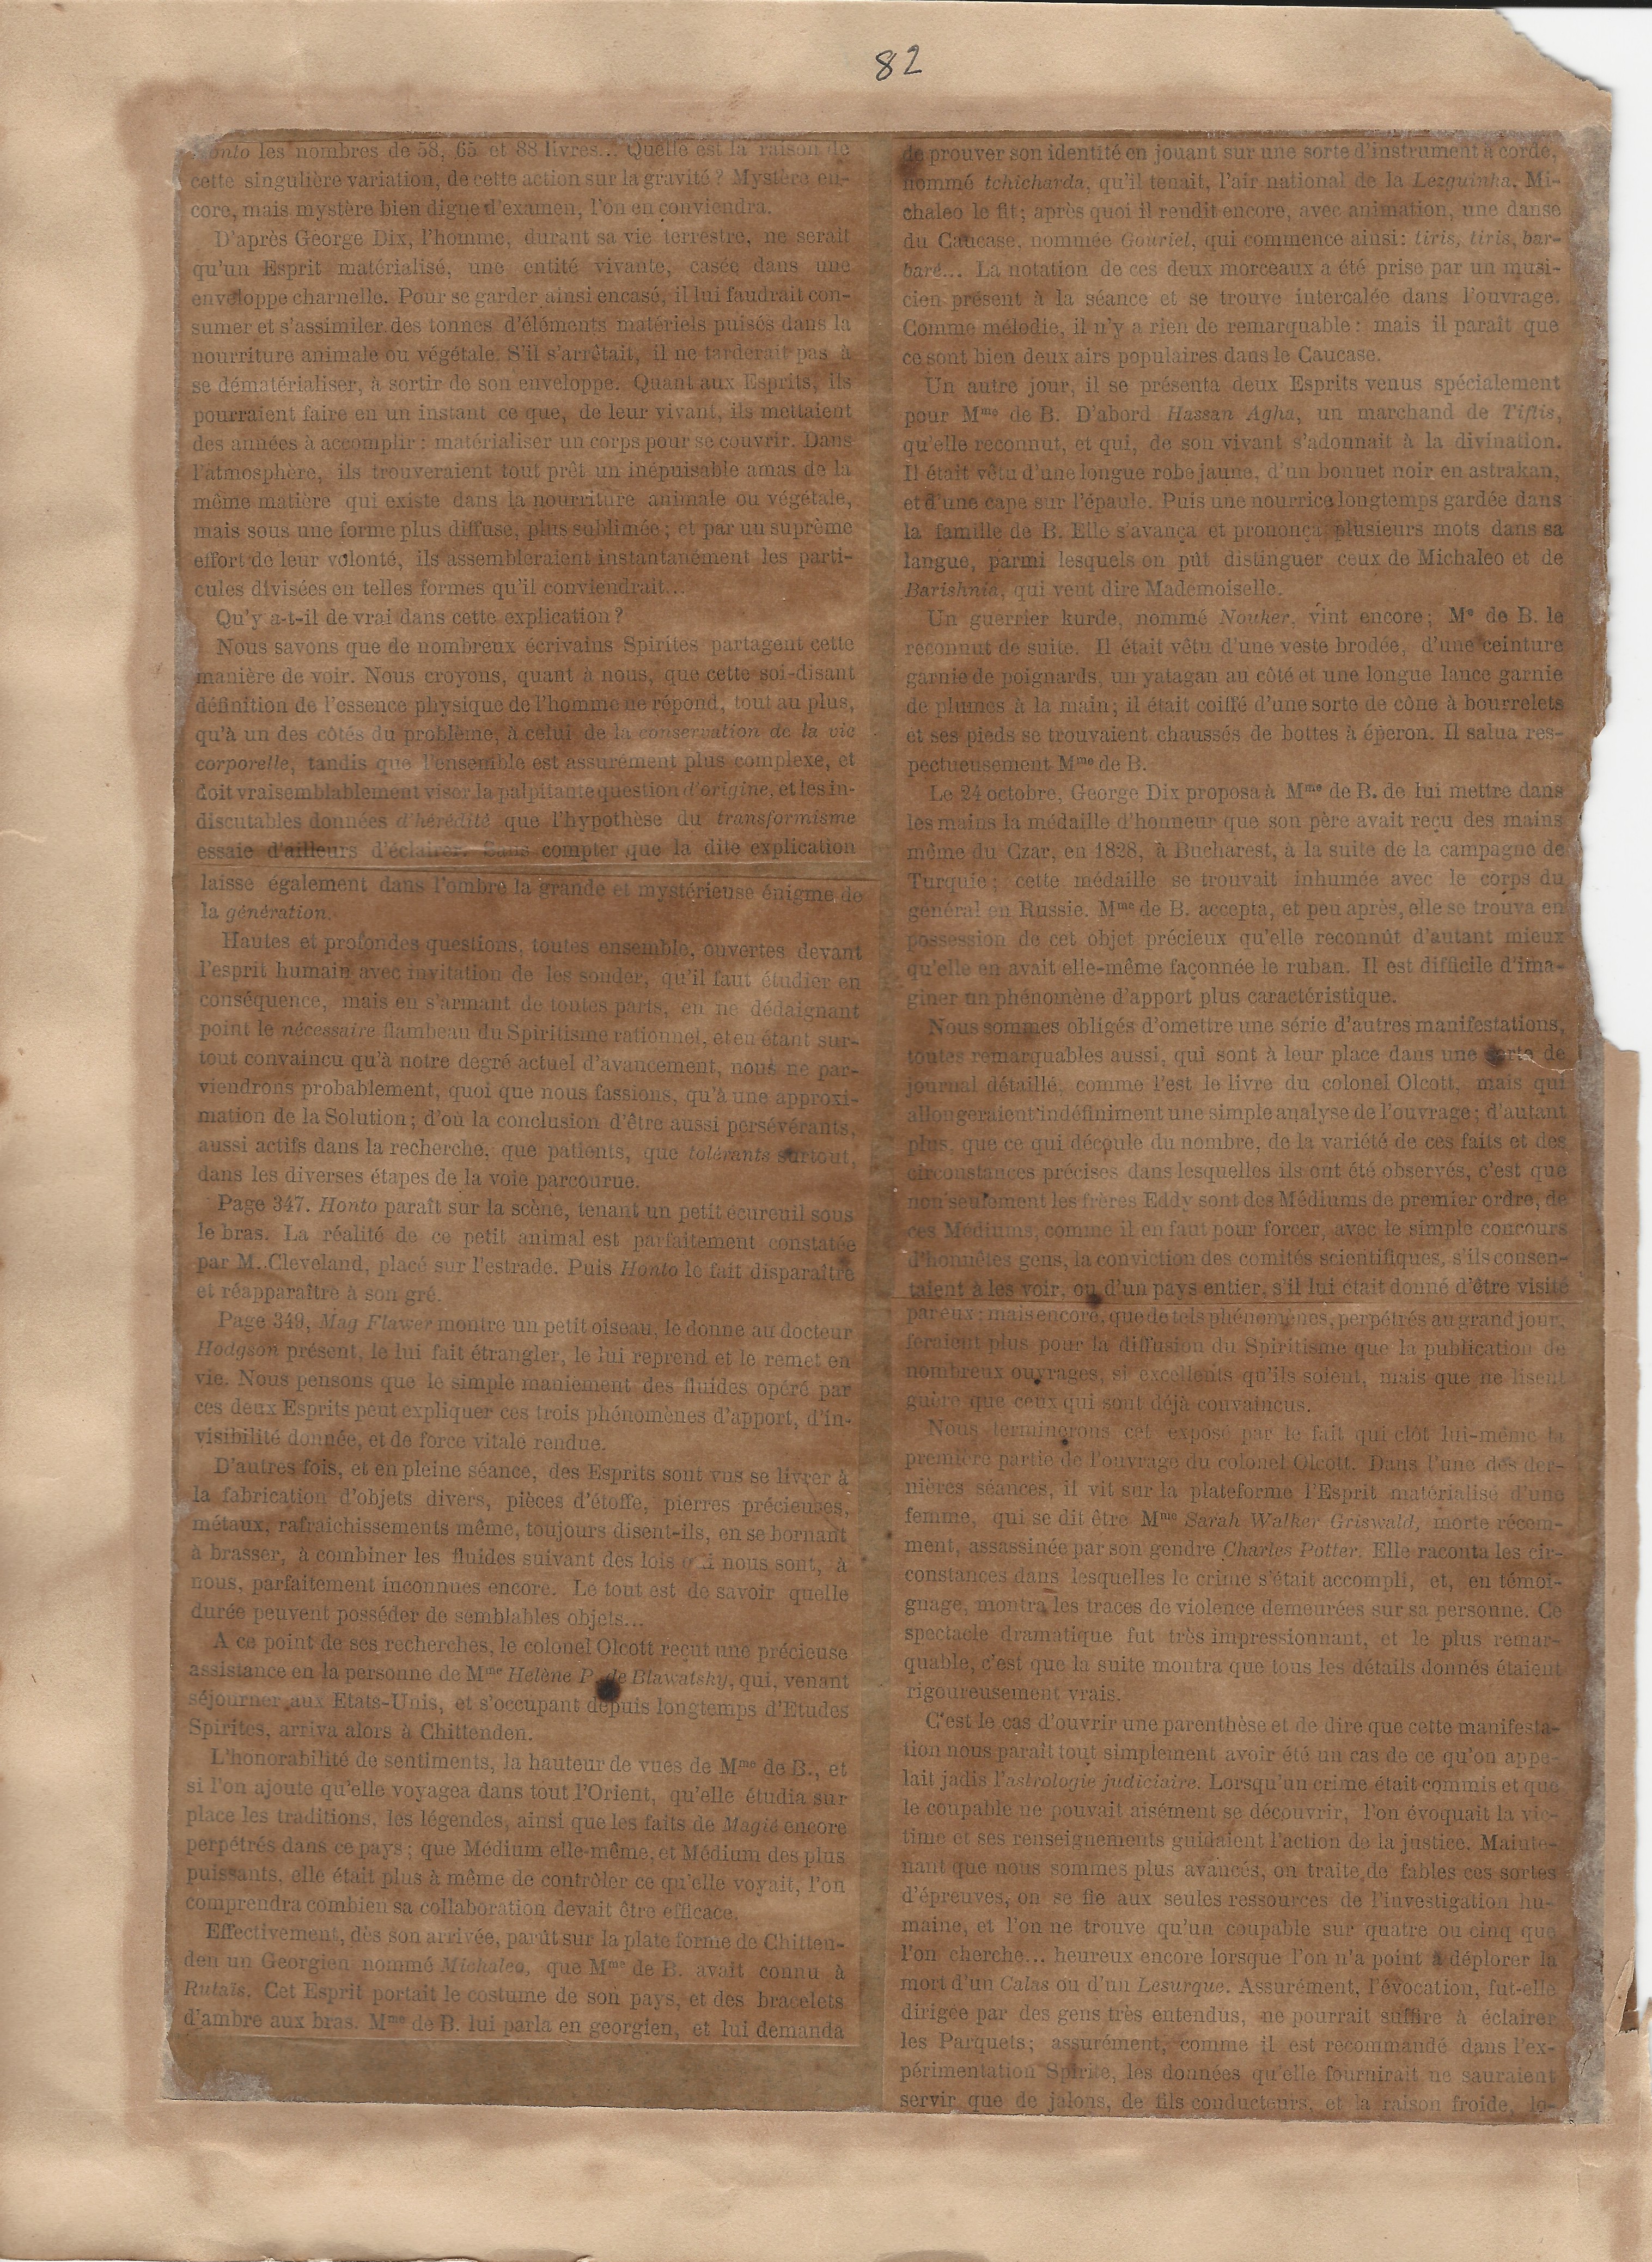 82
Honto les nombres de 58, 65 et 88 livres... Quelle est la raison de
cette singulière variation, de cette action sur la gravité ? Mystère en-
core, mais mystère bien digne d'examen, l'on en conviendra.
D'après George Dix, l'homme, durant sa vie terrestre, ne serait
qu'un Esprit matérialisé, une entité vivante, casée dans une
enveloppe charnelle. Pour se garder ainsi encasé, il lui faudrait con-
sumer et s'assimiler des tonnes d'éléments matériels puisés dans la
nourriture animale ou végétale. S'il s'arrêtait, il ne tarderait pas à
se dématérialiser, à sortir de son enveloppe. Quant aux Esprits, ils
pourraient faire en un instant ce que, de leur vivant, ils mettaient
des années à accomplir : matérialiser un corps pour se couvrir. Dans
l'atmosphère, ils trouveraient tout prêt un inépuisable amas de la
même matière qui existe dans la nourriture animale ou végétale,
mais sous une forme plus diffuse, plus sublimée ; et par un suprême
effort de leur volonté, ils assembleraient instantanément les parti-
cules divisées en telles formes qu'il conviendrait...
Qu'y a-t-il de vrai dans cette explication ?
Nous savons que de nombreux écrivains Spirites partagent cette
manière de voir. Nous croyons, quant à nous, que cette soi-disant
définition de l'essence physique de l'homme ne répond, tout au plus,
qu'à un des côtés du problème, à celui de la conservation de la vie
corporelle, tandis que l'ensemble est assurément plus complexe, et
doit vraisemblablement viser la palpitante question d'origine, et les in-
discutables données d'hérédité que l'hypothèse du transformisme
essaie d'ailleurs d'éclairer. Sans compter que la dite explication
laisse également dans l'ombre la grande et mystérieuse énigme de
la génération.
Hautes et profondes questions, toutes ensemble, ouvertes devant
l'esprit humain avec invitation de les sonder, qu'il faut étudier en
conséquence, mais en s'armant de toutes parts, en ne dédaignant
point le nécessaire flambeau du Spiritisme rationnel, et en étant sur-
tout convaincu qu'à notre degré actuel d'avancement, nous ne par-
viendrons probablement, quoi que nous fassions, qu'à une approxi-
mation de la Solution ; d'où la conclusion d'être aussi persévérants,
aussi actifs dans la recherche, que patients, que tolérants surtout,
dans les diverses étapes de la voie parcourue.
Page 347. Honto paraît sur la scène, tenant un petit écureuil sous
le bras. La réalité de ce petit animal est parfaitement constatée
par M. Cleveland, placé sur l'estrade. Puis Honto le fait disparaître
et réapparaître à son gré.
Page 349, Mag Flawer montre un petit oiseau, le donne au docteur
Hodgson présent, le lui fait étrangler, le lui reprend et le remet en
vie. Nous pensons que le simple maniement des fluides opéré par
ces deux Esprits peut expliquer ces trois phénomènes d'apport, d'in-
visibilité donnée, et de force vitale rendue.
D'autres fois, et en pleine séance, des Esprits sont vus se livrer à
la fabrication d'objets divers, pièces d'étoffe, pierres précieuses,
métaux, rafraichissements même, toujours disent-ils, en se bornant
à brasser, à combiner les fluides suivant des lois qui nous sont, à
nous, parfaitement inconnues encore. Le tout est de savoir quelle
durée peuvent posséder de semblables objets...
A ce point de ses recherches, le colonel Olcott reçut une précieuse
assistance en la personne de Mme Helène P. de Blawatsky, qui, venant
séjourner aux Etats-Unis, et s'occupant depuis longtemps d'Etudes
Spirites, arriva alors à Chittenden.
L'honorabilité de sentiments, la hauteur de vues de Mme de B., et
si l'on ajoute qu'elle voyagea dans tout l'Orient, qu'elle étudia sur
place les traditions, les légendes, ainsi que les faits de Magie encore
perpétrés dans ce pays ; que Médium elle-même, et Médium des plus
puissants, elle était plus à même de contrôler ce qu'elle voyait, l'on
comprendra combien sa collaboration devait être efficace.
Effectivement, dès son arrivée, parût sur la plate forme de Chitten-
den un Georgien nommé Michaleo, que Mme de B. avait connu à
Rutaïs. Cet Esprit portait le costume de son pays, et des bracelets
d'ambre aux bras. Mme de B. lui parla en georgien, et lui demanda
de prouver son identité en jouant sur une sorte d'instrument à corde,
nommé tchicharda, qu'il tenait, l'air national de la Lezguinka. Mi-
chaleo le fit ; après quoi il rendit encore, avec animation, une danse
du Caucase, nommée Gouriel, qui commence ainsi : tiris, tiris, bar-
baré... La notation de ces deux morceaux a été prise par un musi-
cien présent à la séance et se trouve intercalée dans l'ouvrage.
Comme mélodie, il n'y a rien de remarquable : mais il paraît que
ce sont bien deux airs populaires dans le Caucase.
Un autre jour, il se présenta deux Esprits venus spécialement
pour Mme de B. D'abord Hassan Agha, un marchand de Tiflis,
qu'elle reconnut, et qui, de son vivant s'adonnait à la divination.
Il était vêtu d'une longue robe jaune, d'un bonnet noir en astrakan,
et d'une cape sur l'épaule. Puis une nourrice longtemps gardée dans
la famille de B. Elle s'avança et prononça plusieurs mots dans sa
langue, parmi lesquels on pût distinguer ceux de Michaleo et de
Barishnia, qui veut dire Mademoiselle.
Un guerrier kurde, nommé Nouker, vint encore ; Me de B. le
reconnut de suite. Il était vêtu d'une veste brodée, d'une ceinture
garnie de poignards, un yatagan au côté et une longue lance garnie
de plumes à la main ; il était coiffé d'une sorte de cône à bourrelets
et ses pieds se trouvaient chaussés de bottes à éperon. Il salua res-
pectueusement Mme de B.
Le 24 octobre, George Dix proposa à Mme de B. de lui mettre dans
les mains la médaille d'honneur que son père avait reçu des mains
même du Czar, en 1828, à Bucharest, à la suite de la campagne de
Turquie ; cette médaille se trouvait inhumée avec le corps du
général en Russie. Mme de B. accepta, et peu après, elle se trouva en
possession de cet objet précieux qu'elle reconnût d'autant mieux
qu'elle en avait elle-même façonnée le ruban. Il est difficile d'ima-
giner un phénomène d'apport plus caractéristique.
Nous sommes obligés d'omettre une série d'autres manifestations,
toutes remarquables aussi, qui sont à leur place dans une sorte de
journal détaillé, comme l'est le livre du colonel Olcott, mais qui
allongeraient indéfiniment une simple analyse de l'ouvrage ; d'autant
plus, que ce qui découle du nombre, de la variété de ces faits et des
circonstances précises dans lesquelles ils ont été observés, c'est que
non seulement les frères Eddy sont des Médiums de premier ordre, de
ces Médiums, comme il en faut pour forcer, avec le simple concours
d'honnêtes gens, la conviction des comités scientifiques, s'ils consen-
taient à les voir, ou d'un pays entier, s'il lui était donné d'être visité
par eux ; mais encore, que de tels phénomènes, perpétrés au grand jour,
feraient plus pour la diffusion du Spiritisme que la publication de
nombreux ouvrages, si excellents qu'ils soient, mais que ne lisent
guère que ceux qui sont déjà convaincus.
Nous terminerons cet exposé par le fait qui clôt lui-même la
première partie de l'ouvrage du colonel Olcott. Dans l'une des der-
nières séances, il vit sur la plateforme l'Esprit matérialisé d'une
femme, qui se dit être Mme Sarah Walker Griswald, morte récem-
ment, assassinée par son gendre Charles Potter. Elle raconta les cir-
constances dans lesquelles le crime s'était accompli, et, en témoi-
gnage, montra les traces de violence demeurées sur sa personne. Ce
spectacle dramatique fut très impressionnant, et le plus remar-
quable, c'est que la suite montra que tous les détails donnés étaient
rigoureusement vrais.
C'est le cas d'ouvrir une parenthèse et de dire que cette manifesta-
tion nous paraît tout simplement avoir été un cas de ce qu'on appe-
lait jadis l'astrologie judiciaire. Lorsqu'un crime était commis et que
le coupable ne pouvait aisément se découvrir, l'on évoquait la vic-
time et ses renseignements guidaient l'action de la justice. Mainte-
nant que nous sommes plus avancés, on traite de fables ces sortes
d'épreuves, on se fie aux seules ressources de l'investigation hu-
maine, et l'on ne trouve qu'un coupable sur quatre ou cinq que
l'on cherche... heureux encore lorsque l'on n'a point à déplorer la
mort d'un Calas ou d'un Lesurque. Assurément, l'évocation, fut-elle
dirigée par des gens très entendus, ne pourrait suffire à éclairer
les Parquets ; assurément, comme il est recommandé dans l'ex-
périmentation Spirite, les données qu'elle fournirait ne sauraient
servir que de jalons, de fils conducteurs, et la raison froide, lo-